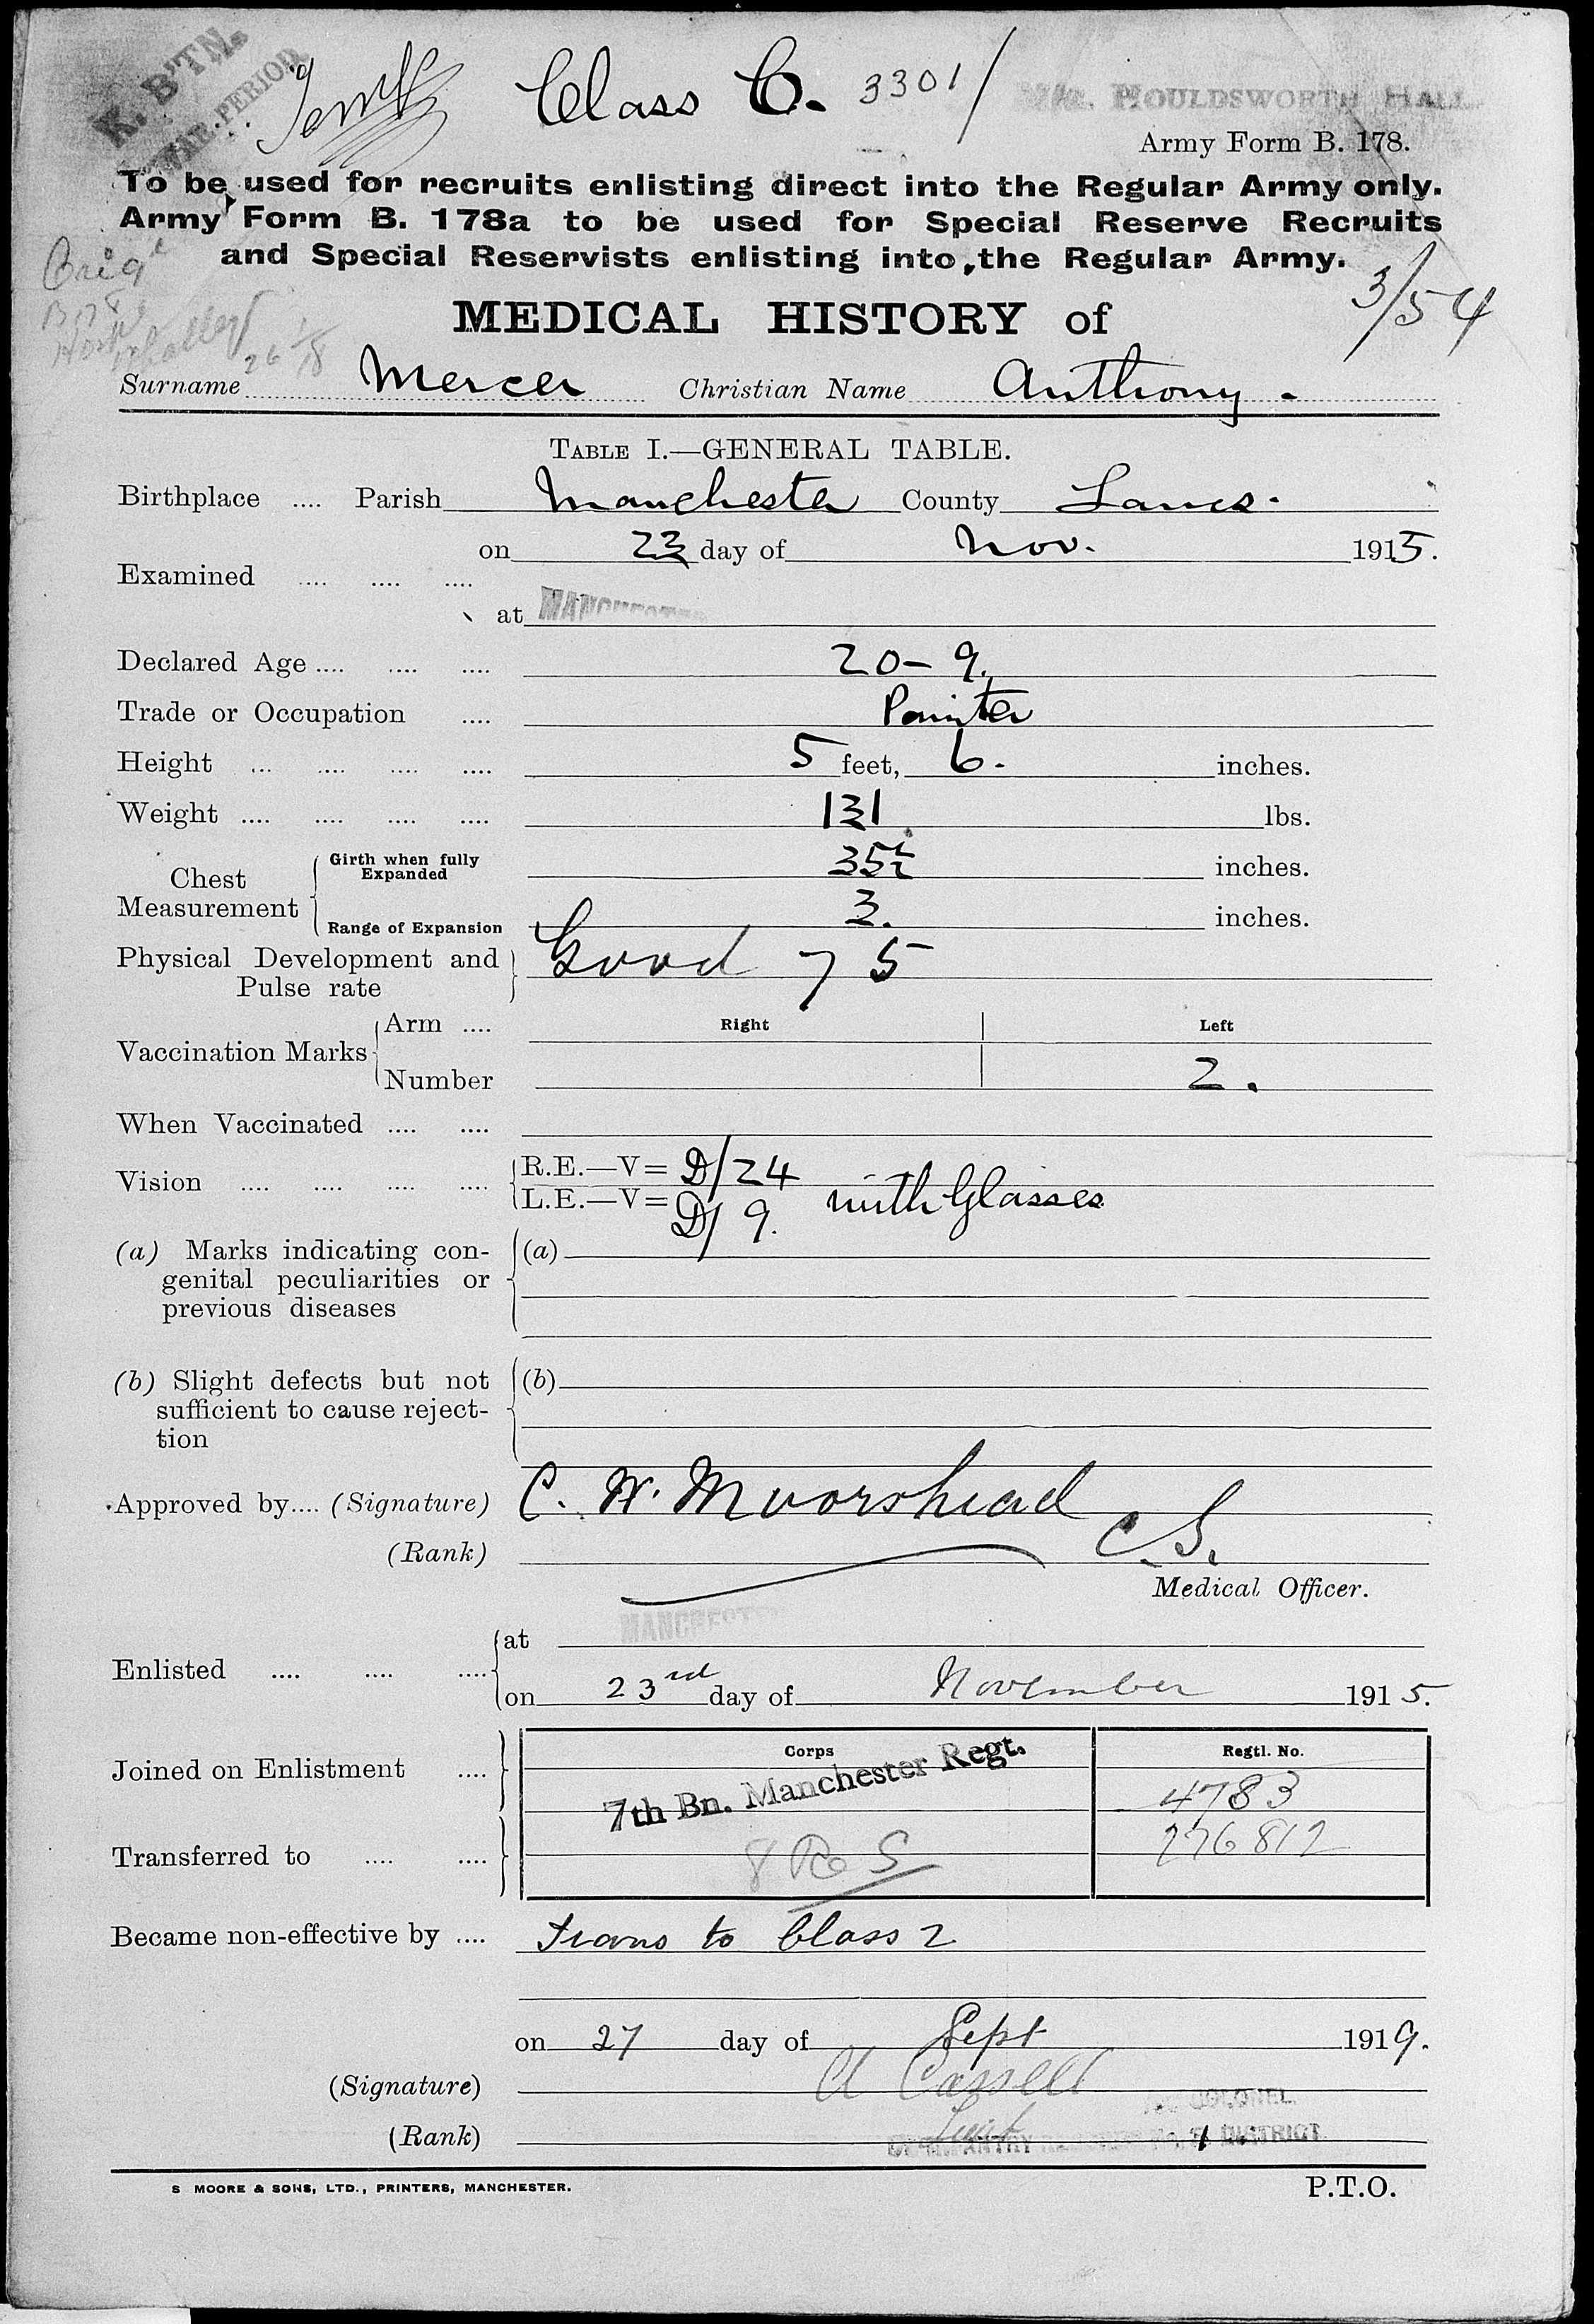 K. BTN.
WAR. PERIOD.
Class C. 3301/
HOULDSWORTH HALL
Army Form B. 178.
To be used for recruits enlisting direct into the Regular Army only.
Army Form B. 178a to be used for Special Reserve Recruits
and Special Reservists enlisting into the Regular Army.
3/54
MEDICAL HISTORY of
Surname Mercer Christian Name Anthony.
TABLE I.—GENERAL TABLE.
Birthplace .... Parish Manchester County Lancs.
on 23 day of Nov. 1915.
Examined .... .... ....
at MANCHESTER
Declared Age .... .... .... 20-9.
Trade or Occupation .... Painter
Height ... .... .... .... 5 feet, 6. inches.
Weight .... .... .... .... 131 lbs.
Chest Measurement
Girth when fully Expanded 35½ inches.
Range of Expansion 3. inches.
Physical Development and Pulse rate Good 75
Vaccination Marks
Arm .... Right Left
Number 2.
When Vaccinated .... ....
Vision .... .... .... ....
R.E.—V= D/24
L.E.—V= D/9. with Glasses
(a) Marks indicating con- (a)
genital peculiarities or
previous diseases
(b) Slight defects but not (b)
sufficient to cause reject-
tion
Approved by.... (Signature) C. W. Moorshead
(Rank) C.S.
Medical Officer.
MANCHESTER
Enlisted .... .... .... at
on 23rd day of November 1915.
Corps Regtl. No.
Joined on Enlistment .... 7th Bn. Manchester Regt. 4783
Transferred to .... .... 8 Res 276812
Became non-effective by .... Trans to Class Z
on 27 day of Sept 1919.
(Signature) Cassell
COLONEL
(Rank) Lieut
DISTRICT
S MOORE & SONS, LTD., PRINTERS, MANCHESTER.
P.T.O.